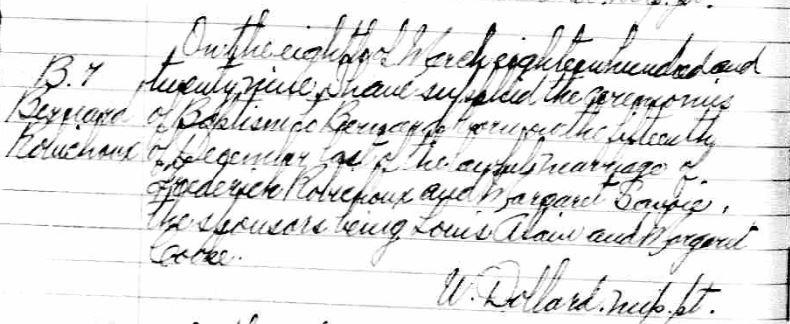 On the eighth of March eighteen hundred and
twenty nine I have supplied the ceremonies
of Baptism to Bernard born on the sixteenth
of December last of the lawful marriage of
Frederick Robichoux and Margaret Savoie,
the sponsors being Louis Alain and Margaret
B. 7
Bernard
Robichoux
W. Dollard. mip. pt.